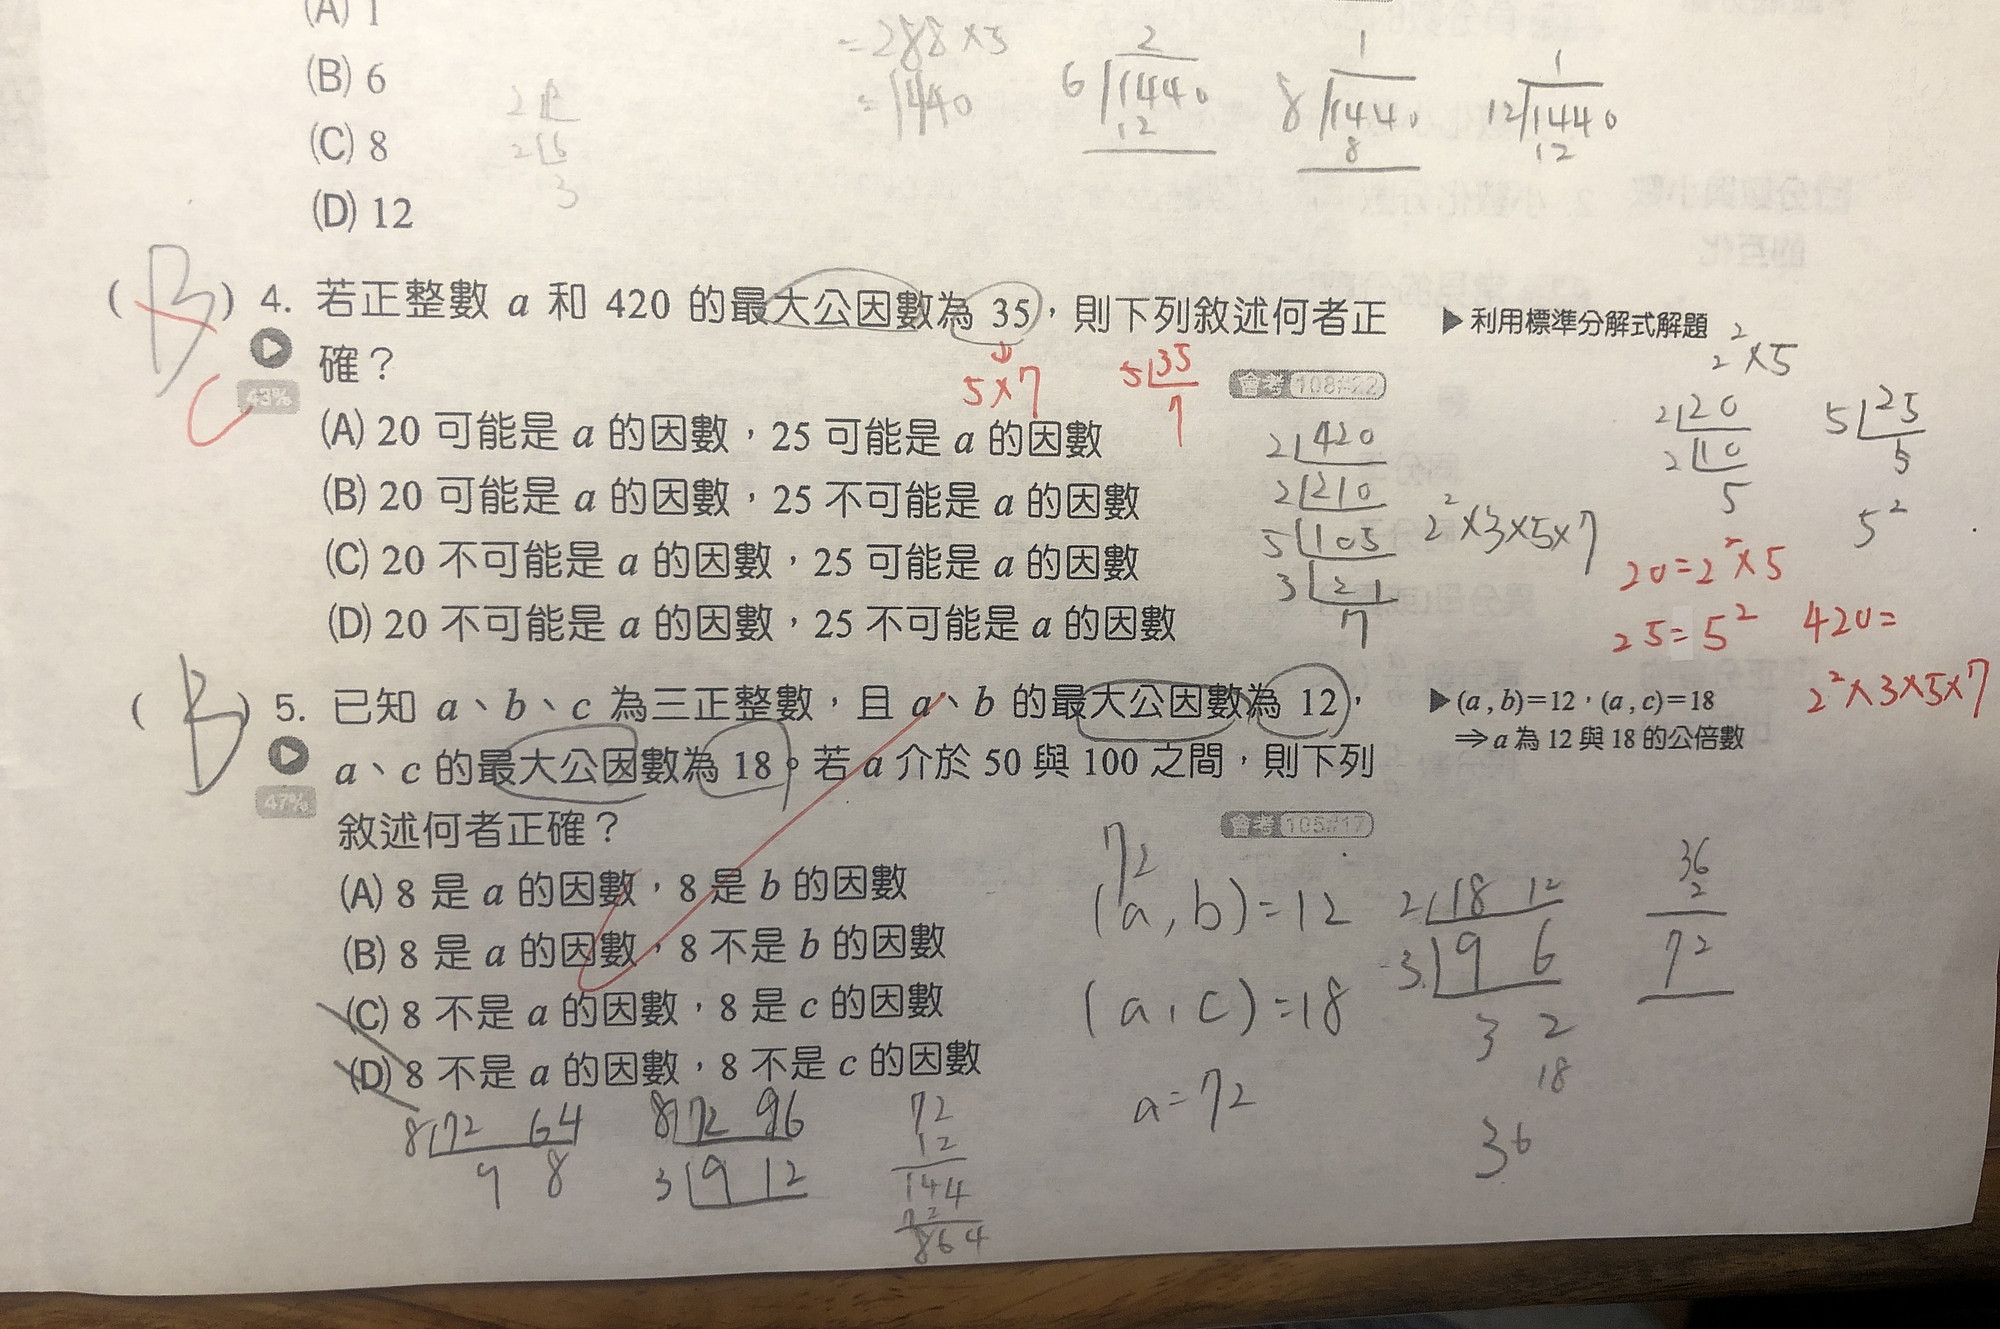 (A) 1
(B) 6
(C) 8
(D) 12
2 12
2 6
3
= 288 × 5
= 1440
2
6 1440
12
1
8 1440
8
1
12 1440
12
( B ) 4. 若正整數 a 和 420 的最大公因數為 35，則下列敘述何者正
確？
C
43%
5 × 7
5 35
7
▶利用標準分解式解題
會考 108#22
(A) 20 可能是 a 的因數，25 可能是 a 的因數
(B) 20 可能是 a 的因數，25 不可能是 a 的因數
(C) 20 不可能是 a 的因數，25 可能是 a 的因數
(D) 20 不可能是 a 的因數，25 不可能是 a 的因數
2 420
2 210
5 105
3 21
7
2² × 3 × 5 × 7
2² × 5
2 20
2 10
5
5 25
5
5²
20 = 2² × 5
25 = 5²
420 =
2² × 3 × 5 × 7
( B ) 5. 已知 a、b、c 為三正整數，且 a、b 的最大公因數為 12，
a、c 的最大公因數為 18。若 a 介於 50 與 100 之間，則下列
敘述何者正確？
47%
▶(a , b)=12，(a , c)=18
⇒ a 為 12 與 18 的公倍數
會考 105#17
(A) 8 是 a 的因數，8 是 b 的因數
(B) 8 是 a 的因數，8 不是 b 的因數
(C) 8 不是 a 的因數，8 是 c 的因數
(D) 8 不是 a 的因數，8 不是 c 的因數
72
(a, b) = 12
(a, c) = 18
a = 72
2 18 12
3 9 6
3 2
18
36
36
2
72
8 72 64
9 8
8 72 96
3 9 12
72
12
144
72
864